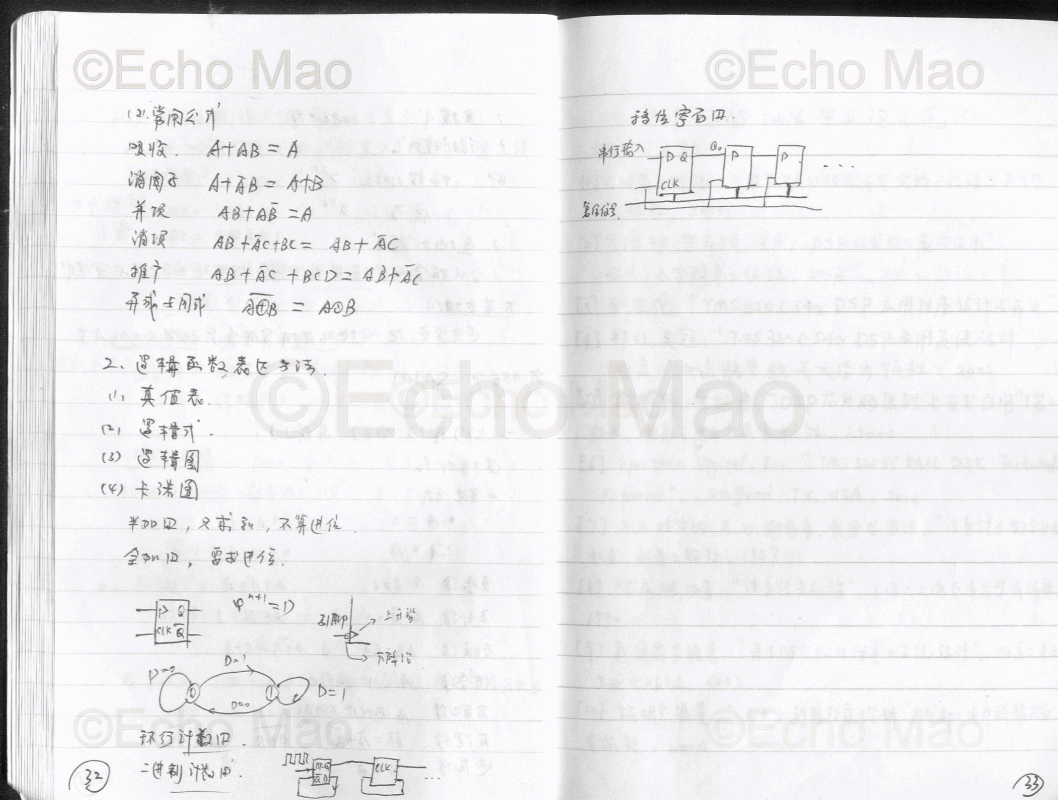 ©Echo Mao
(2). 常用公式
吸收. A+AB = A
消因子 A+A̅B = A+B
并项 AB+AB̅ = A
消项 AB+A̅C+BC = AB+A̅C
推广 AB+A̅C+BCD = AB+A̅C
异或与同或 \overline{A⊕B} = A⊙B
2、逻辑函数表达方法.
(1) 真值表.
(2) 逻辑式.
(3) 逻辑图
(4) 卡诺图
半加四, 只求和, 不算进位.
全加四, 要求进位.
D Q
CLK Q̅
φⁿ⁺¹ = D
引脚
上升沿
下降沿
D=0
D=1
0
1
D=1
D=0
环行计数四.
二进制计数四.
CLK
...
32
©Echo Mao
©Echo Mao
©Echo Mao
移位寄存四.
串行输入
D Q
CLK
Q₀
D
D
...
33
©Echo Mao